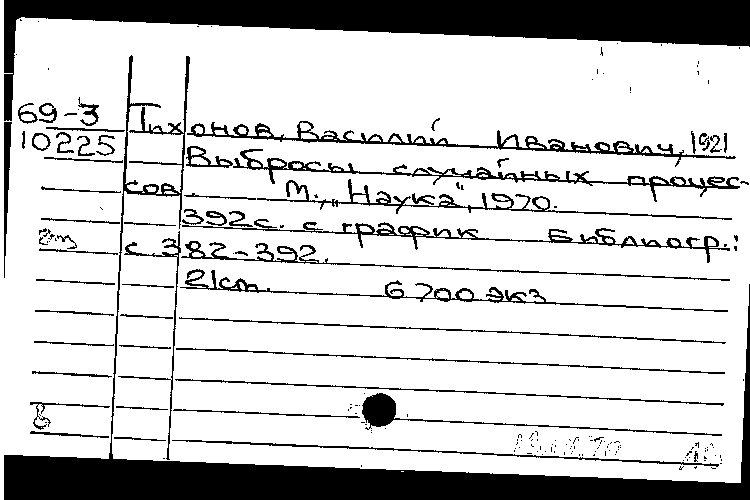 69-3 Тихонов, Василий Иванович, 1921
10225 Выбросы случайных процес-
сов. М., „Наука", 1970.
392с. с график Библиогр.:
с. 382-392.
21cm. 6700 экз